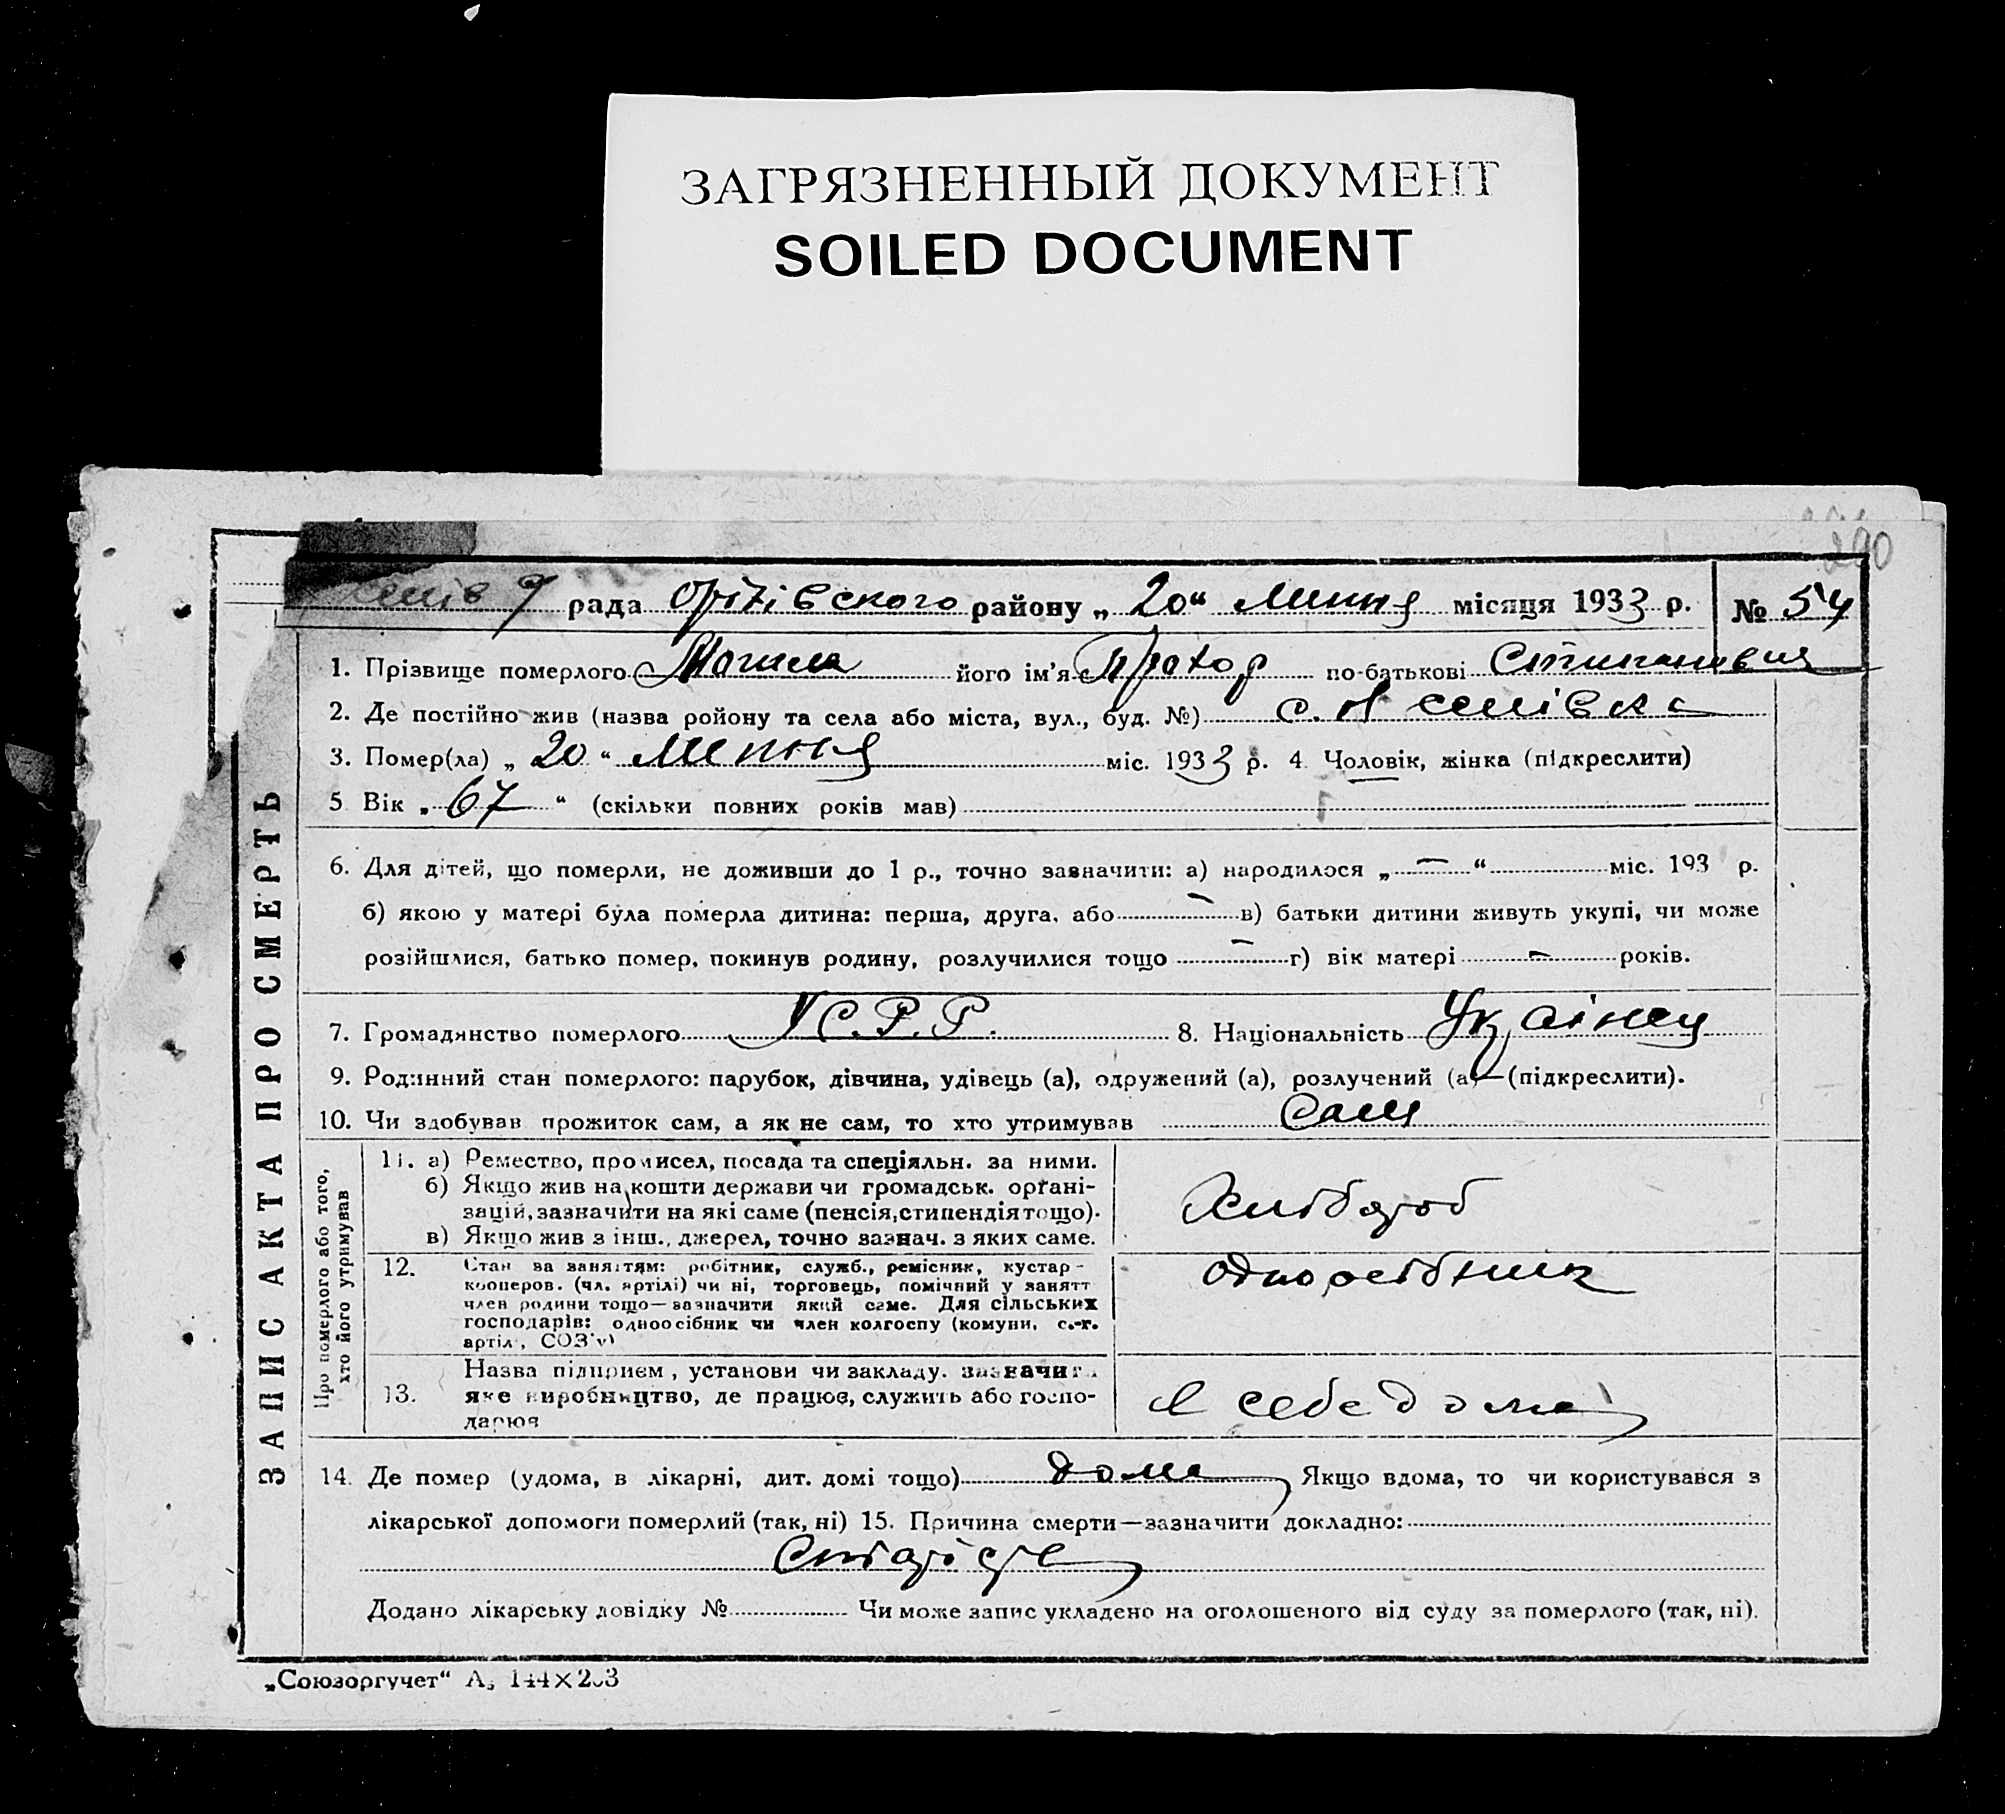 ЗАГРЯЗНЕННЫЙ ДОКУМЕНТ
SOILED DOCUMENT
290
рада района „ 20 “ Липня місяця 1933 р. № 54
1. Прізвище померлого Могила його ім'я Прохор по-батькові
2. Де постійно жив (назва ройону та села або міста, вул., буд. №) с.
3. Помер(ла) „ 20 “ Липня міс. 1933 р. 4. Чоловік, жінка (підкреслити)
5. Вік „ 67 “ (скільки повних років мав)
6. Для дітей, що померли, не доживши до 1 р., точно зазначити: а) народилося „ — “ міс. 193 р.
б) якою у матері була померла дитина: перша, друга, або — в) батьки дитини живуть укупі, чи може
розійшлися, батько помер, покинув родину, розлучилися тощо — г) вік матері — років.
7. Громадянство померлого УС.Р.Р. 8. Національність Українец
9. Родинний стан померлого: парубок, дівчина, удівець (а), одружений (а), розлучений (а)—(підкреслити).
10. Чи здобував прожиток сам, а як не сам, то хто утримував Сам
ЗАПИС АКТА ПРО СМЕРТЬ
Про померлого або того,
хто його утримував
11. а) Ремество, промисел, посада та спеціяльн. за ними.
б) Якщо жив на кошти держави чи громадськ. органі-
зацій, зазначити на які саме (пенсія, стипендія тощо).
в) Якщо жив з інш., джерел, точно зазнач. з яких саме.
Хлібороб
12. Стан за заняттям: робітник, служб., ремісник, кустар-
кооперов. (чл. артілі) чи ні, торговець, помічний у занятт
член родини тощо—зазначити який саме. Для сільських
господарів: одноосібник чи член колгоспу (комуни, с.-г.
артіл., СОЗ'у)
одноосібник
13. Назва підприєм, установи чи закладу. зазначит
яке виробництво, де працює, служить або госпо-
дарює
в себе дома
14. Де помер (удома, в лікарні, дит. домі тощо) дома Якщо вдома, то чи користувався з
лікарської допомоги померлий (так, ні) 15. Причина смерти—зазначити докладно:
Додано лікарську довідку № Чи може запис укладено на оголошеного від суду за померлого (так, ні).
„Союзоргучет“ А5 144×203